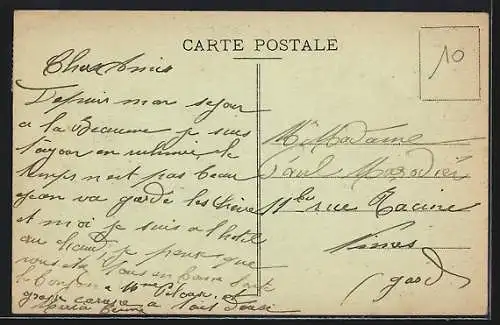 CARTE POSTALE
10
Chers Amis
Depuis mon sejour
a la Beaume je suis
toujour en
temps n est pas beau
Jean va garde les chèvre
et moi je suis a l hotel
au chaud, je pense que
vous ete tous en bonne sante
le bonjour a Mme
grosse caresse a tout
Mr Madame
Paul
11 bis rue Racine
Nimes
gard